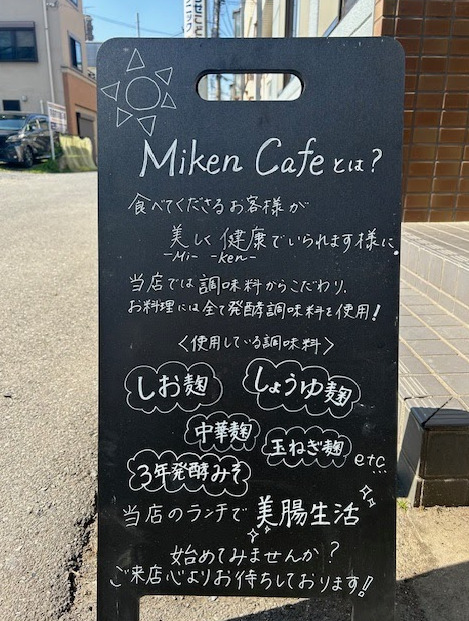 Miken Cafeとは?
食べてくださるお客様が
美しく健康でいられます様に。
-Mi- -ken-
当店では調味料からこだわり、
お料理には全て発酵調味料を使用!
〈使用している調味料〉
しお麹 しょうゆ麹
中華麹 玉ねぎ麹
3年発酵みそ etc...
当店のランチで美腸生活
始めてみませんか?
ご来店心よりお待ちしております!!